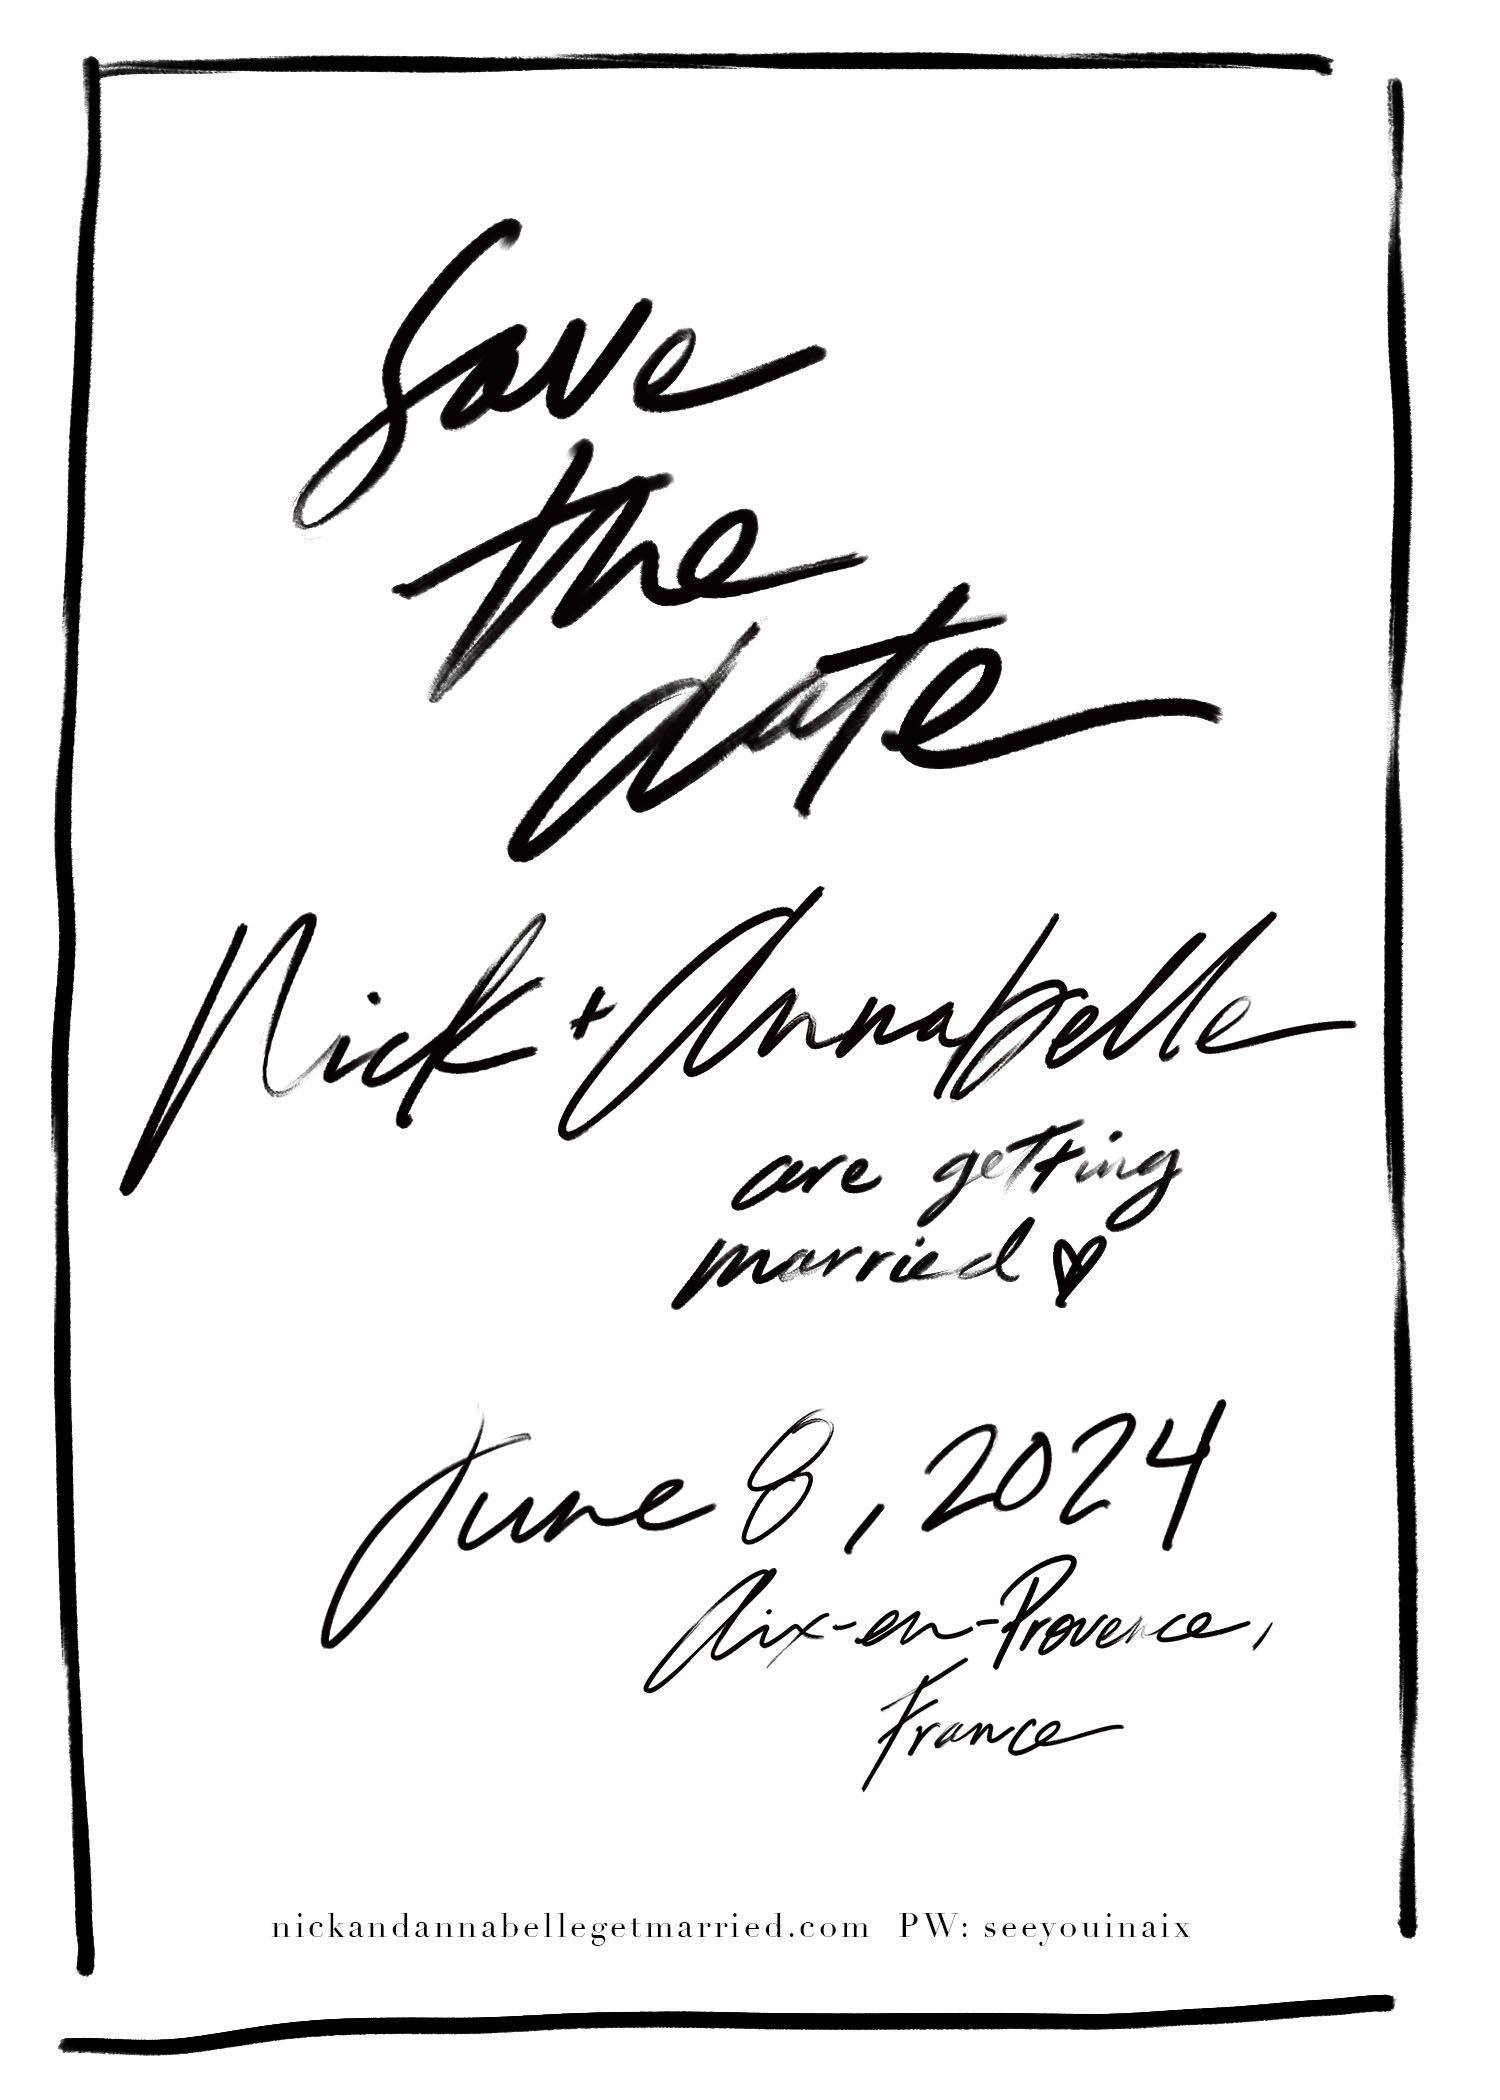 Save
the
date
Nick + Annabelle
are getting
married ♡
June 8, 2024
Aix-en-Provence,
France
nickandannabellegetmarried.com PW: seeyouinaix